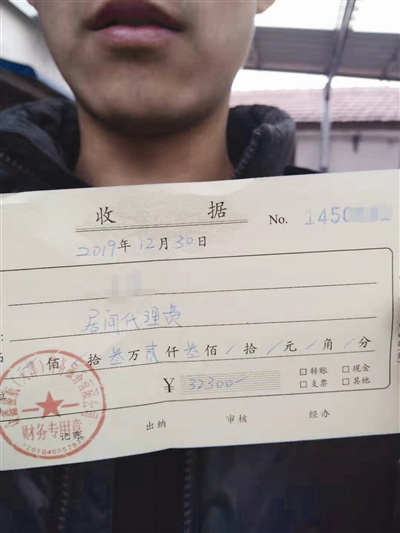 收 据 No. 1450
2019年12月30日
居间代理费
佰 拾叁万贰仟叁佰/拾/元/角/分
¥ 32300- □转账 □现金
□支票 □其他
财务专用章
记账 出纳 审核 经办